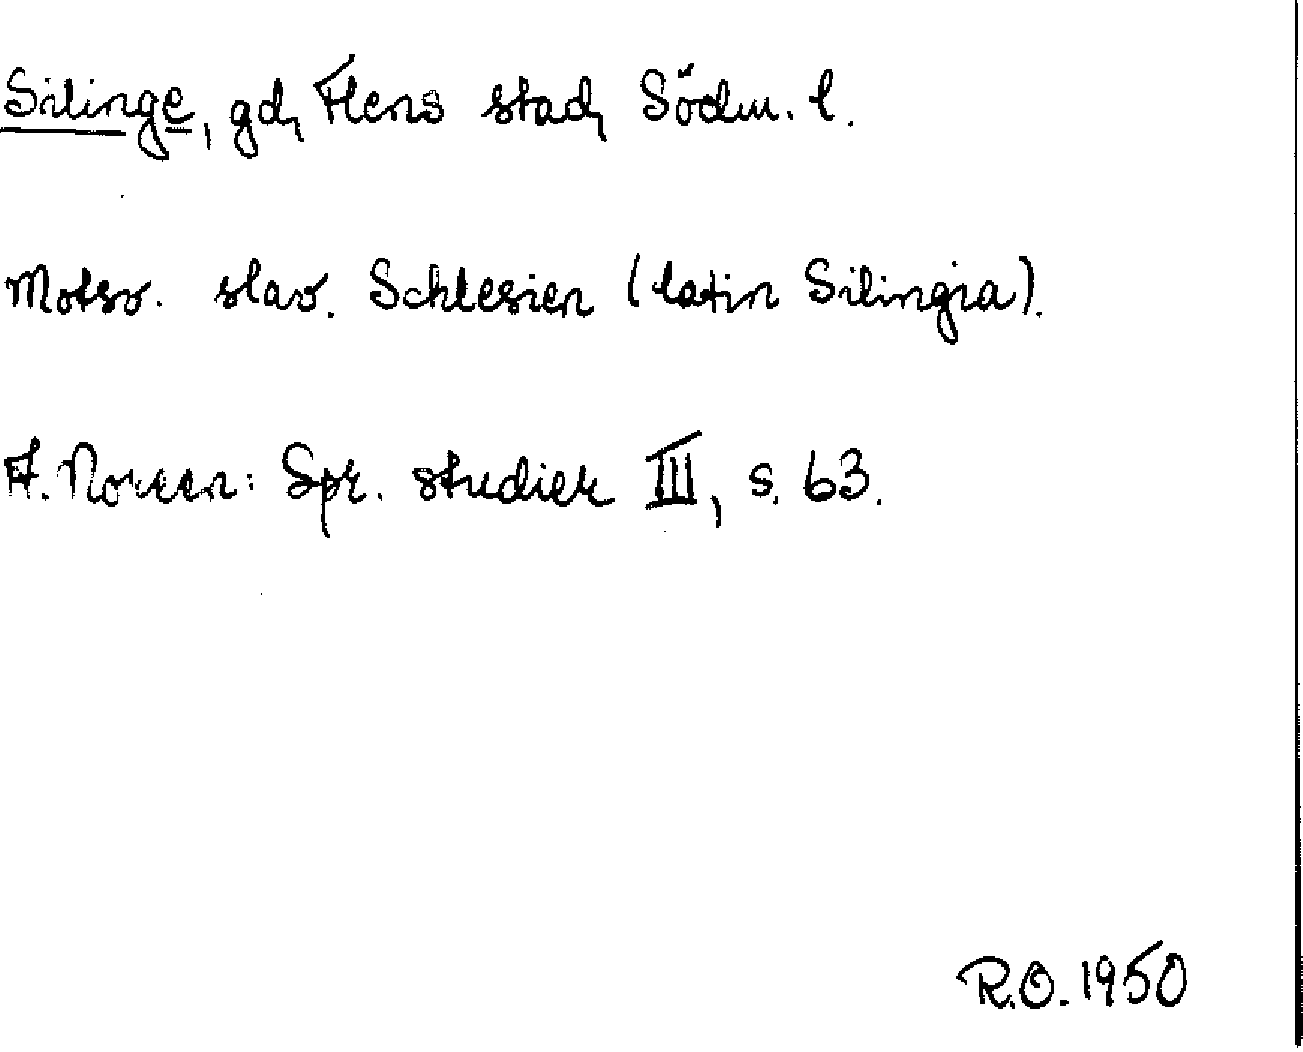 Silinge, gd, Flens stad, Södm. l.
Motsv. slav. Schlesien (latin Silingia).
A. Noreen: Spr. studier III, s. 63.
R.O. 1950